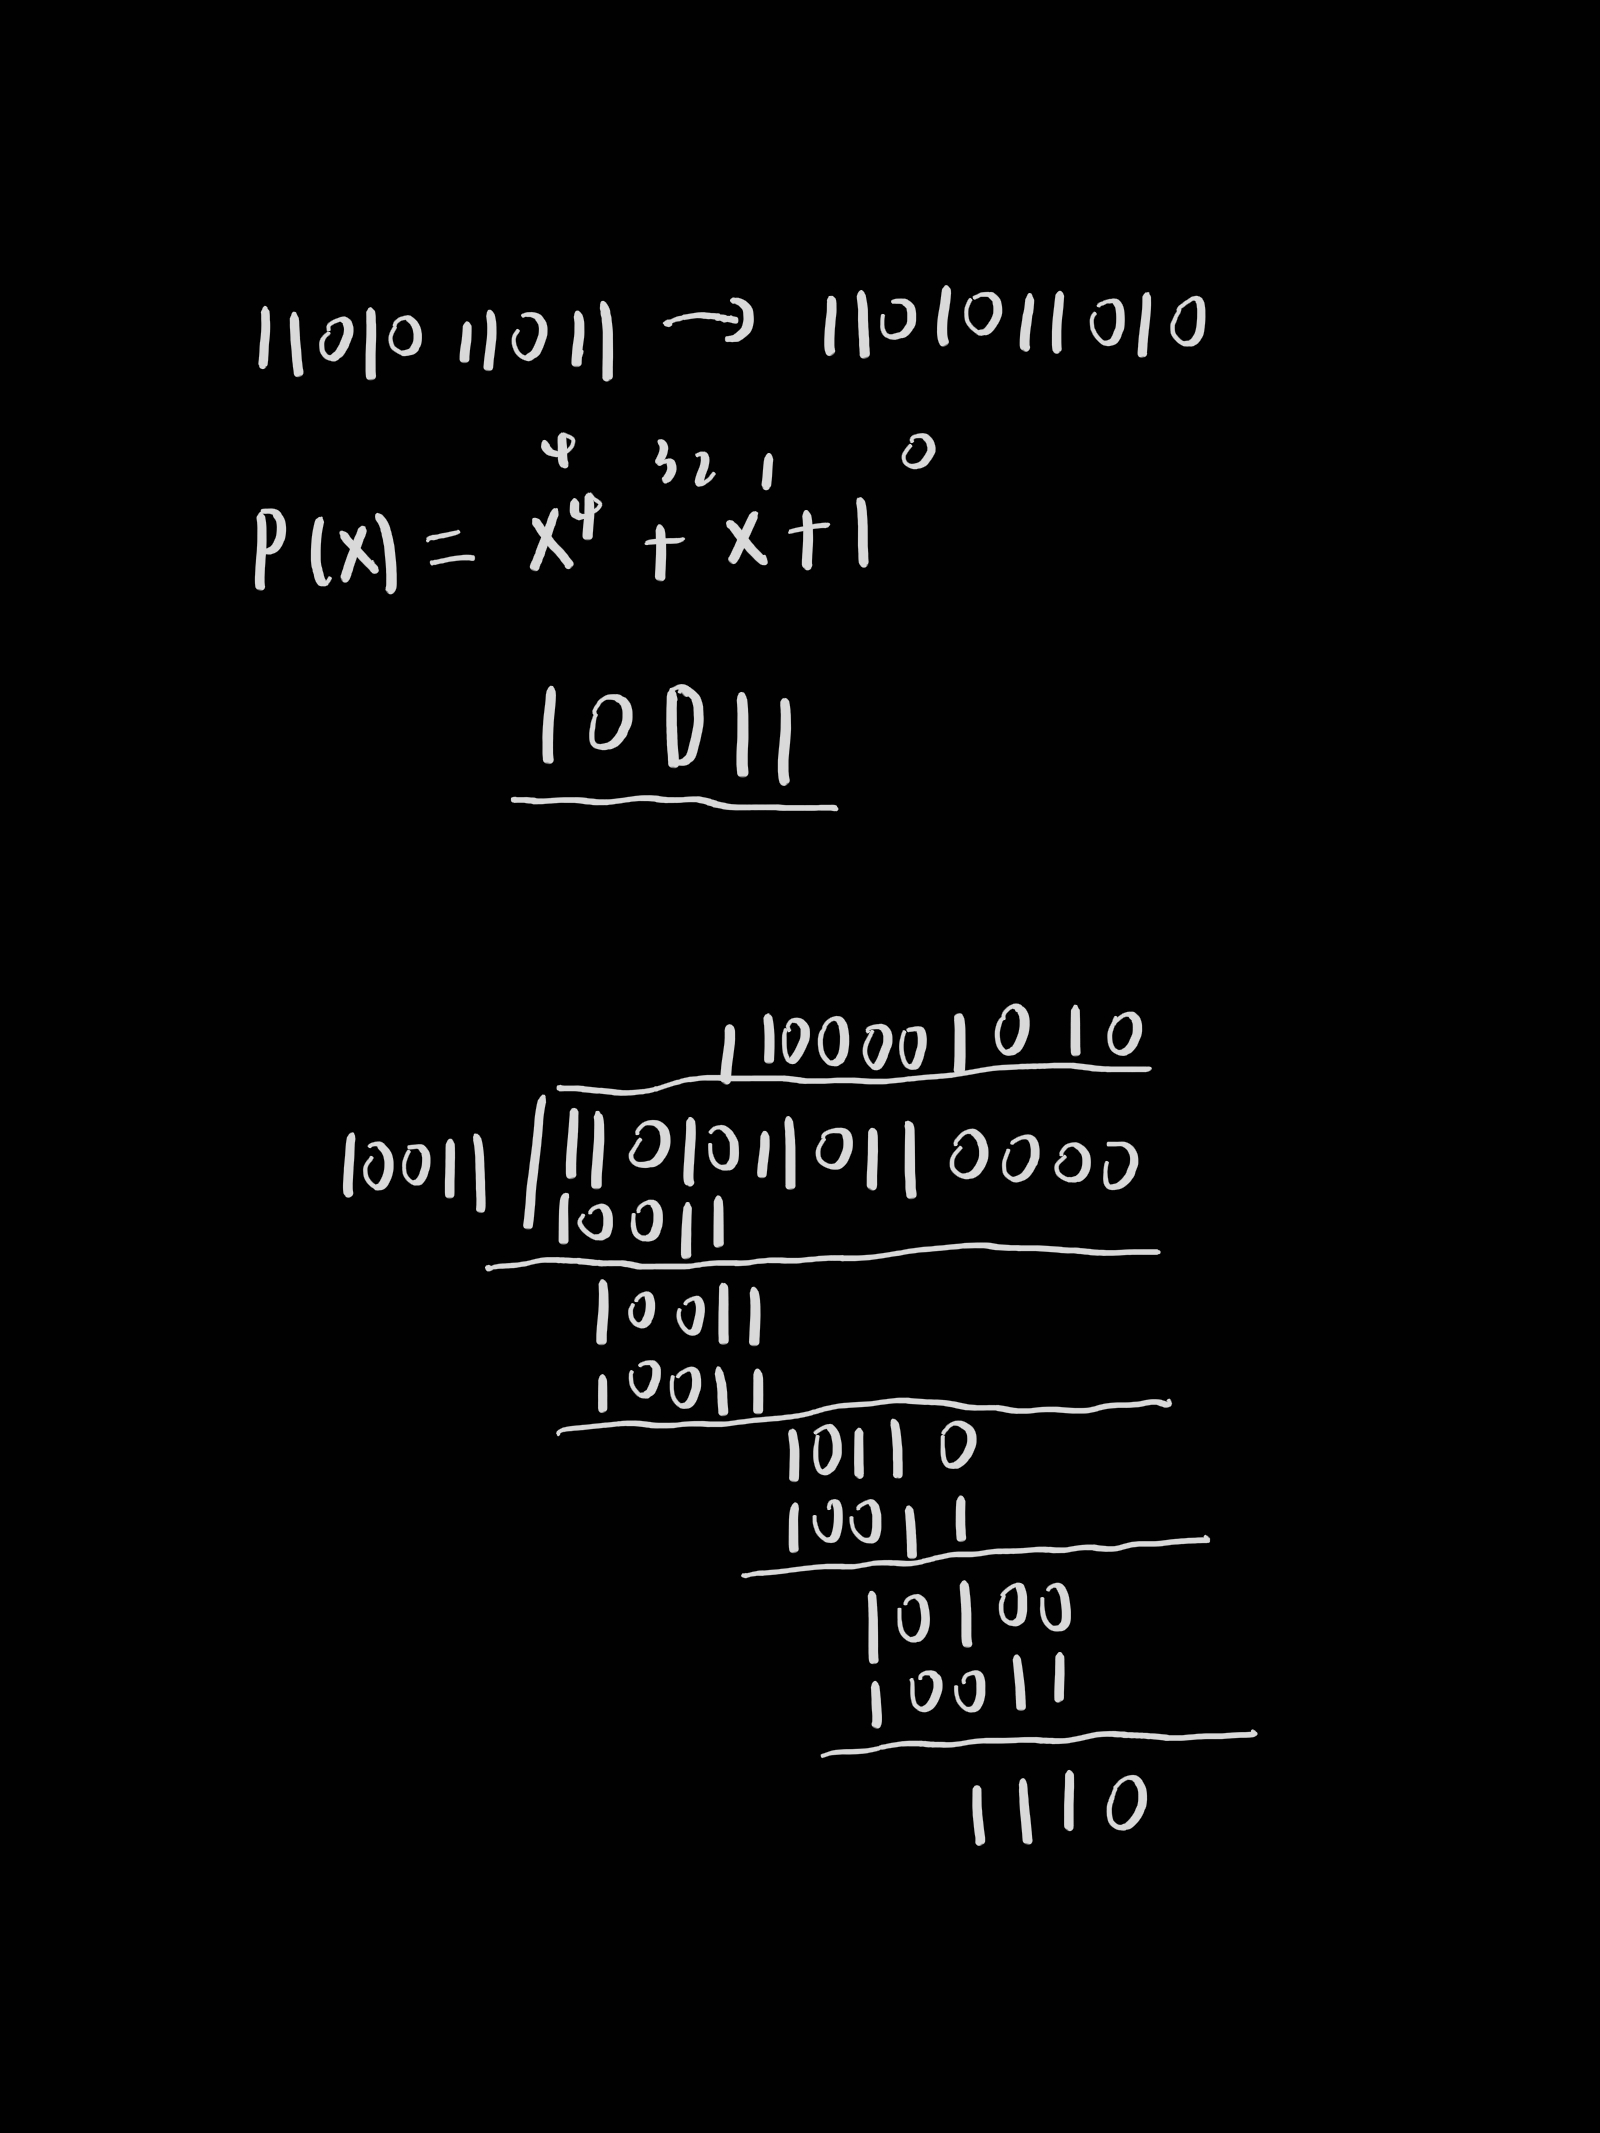 1101011011 → 1101011010
4 3 2 1 0
P(x) = x⁴ + x + 1
10011
1100001010
10011 11010110110000
10011
10011
10011
10110
10011
10100
10011
1110